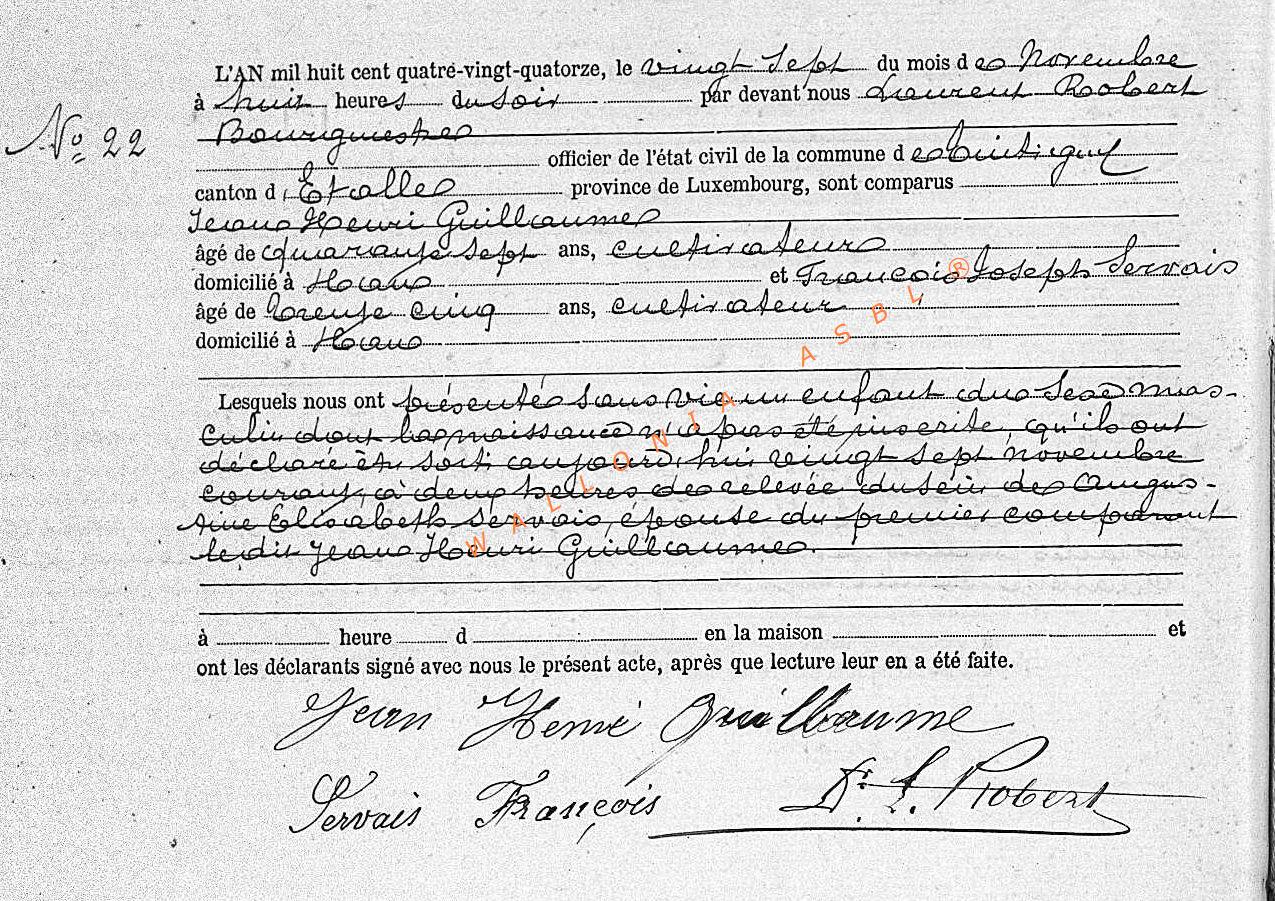 L'AN mil huit cent quatre-vingt-quatorze, le vingt sept du mois de Novembre
à huit heures du soir par devant nous Laurent Robert
Nº 22
Bourgmestre
officier de l'état civil de la commune de Saintigny
canton d'Etalle province de Luxembourg, sont comparus
Jean Henri Guillaume
âgé de quarante sept ans, cultivateur
domicilié à Han et François Joseph Servais
âgé de trente cinq ans, cultivateur
domicilié à Han
Lesquels nous ont présenté sans vie un enfant du sexe mas-
culin dont la naissance n'a pas été inscrite, qu'ils ont
déclaré être sorti aujourd'hui vingt sept novembre
courant, à deux heures de relevée du sein de Augus-
tine Elisabeth Servais, épouse du premier comparant
le dit Jean Henri Guillaume.
à heure d en la maison et
ont les déclarants signé avec nous le présent acte, après que lecture leur en a été faite.
Jean Henri Guillaume
Servais François Dr. L. Robert
WALLONIA ASBL ®